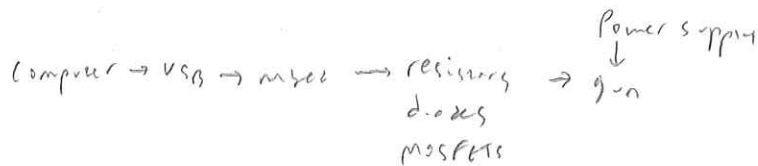 Power supply
↓
Computer → USB → mbed → resistors → gun
diodes
MOSFETs